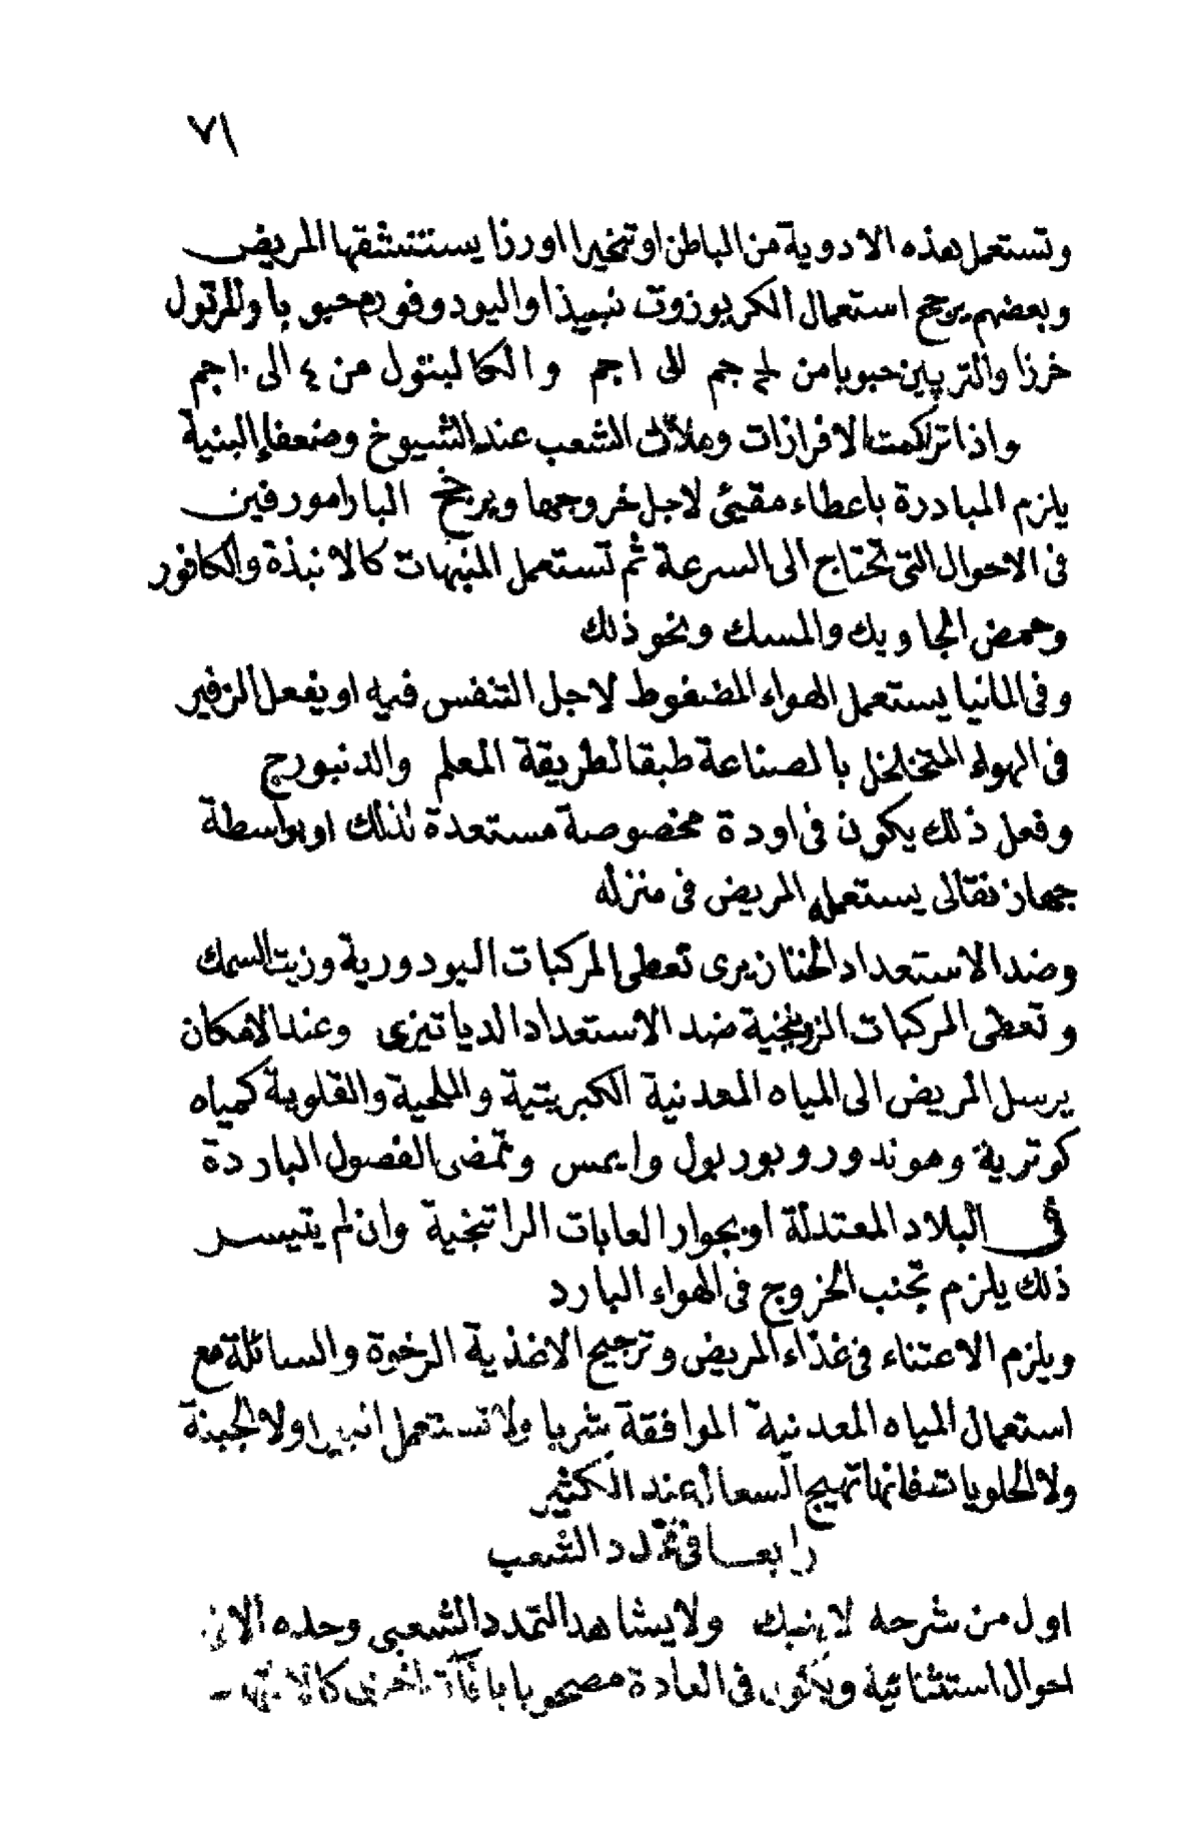 ٧١
وتستعمل هذه الادوية من الباطن اوتبخيرا اورذا يستنشقها المريض
وبعضهم يرجح استعمال الكريوزوت نبيذا واليود وفورم حبوبا والمرتول
خرزا والتربين حبوبا من جم الى ١ جم والكالبتول من ٤ الى ١٠ جم
واذا تراكمت الافرازات وملأت الشعب عند الشيوخ وضعفاء البنية
يلزم المبادرة باعطاء مقيئ لاجل خروجها ويرجح البارامورفين
فى الاحوال التى تحتاج الى السرعة ثم تستعمل المنبهات كالانبذة والكافور
وحمض الجاويك والمسك ونحو ذلك
وفى المانيا يستعمل الهواء المضغوط لاجل التنفس فيه او يفعل الزفير
فى الهواء المتخلخل بالصناعة طبقا لطريقة المعلم والدنبورج
وفعل ذلك يكون فى اودة مخصوصة مستعدة لذلك او بواسطة
جهاز نقالى يستعمله المريض فى منزله
وضد الاستعداد الخنازيرى تعطى المركبات اليودورية وزيت السمك
وتعطى المركبات الزرنيخية ضد الاستعداد الدياتيزى وعند الامكان
يرسل المريض الى المياه المعدنية الكبريتية والملحية والقلوية كمياه
كوترية وهوندورو بوربول وايمس وتمضى الفصول الباردة
فى البلاد المعتدلة او بجوار الغابات الراتنجية وان لم يتيسر
ذلك يلزم تجنب الخروج فى الهواء البارد
ويلزم الاعتناء فى غذاء المريض وترجيح الاغذية الرخوة والسائلة مع
استعمال المياه المعدنية الموافقة شربا ولا تستعمل ولا الجبنة
ولا الحلويات فانها تهيج السعال عند الكثير
رابعا فى تمدد الشعب
اول من شرحه لاينك ولا يشاهد التمدد الشعبى وحده الا فى
احوال استثنائية ويكون فى العادة مصحوبا بافات اخرى